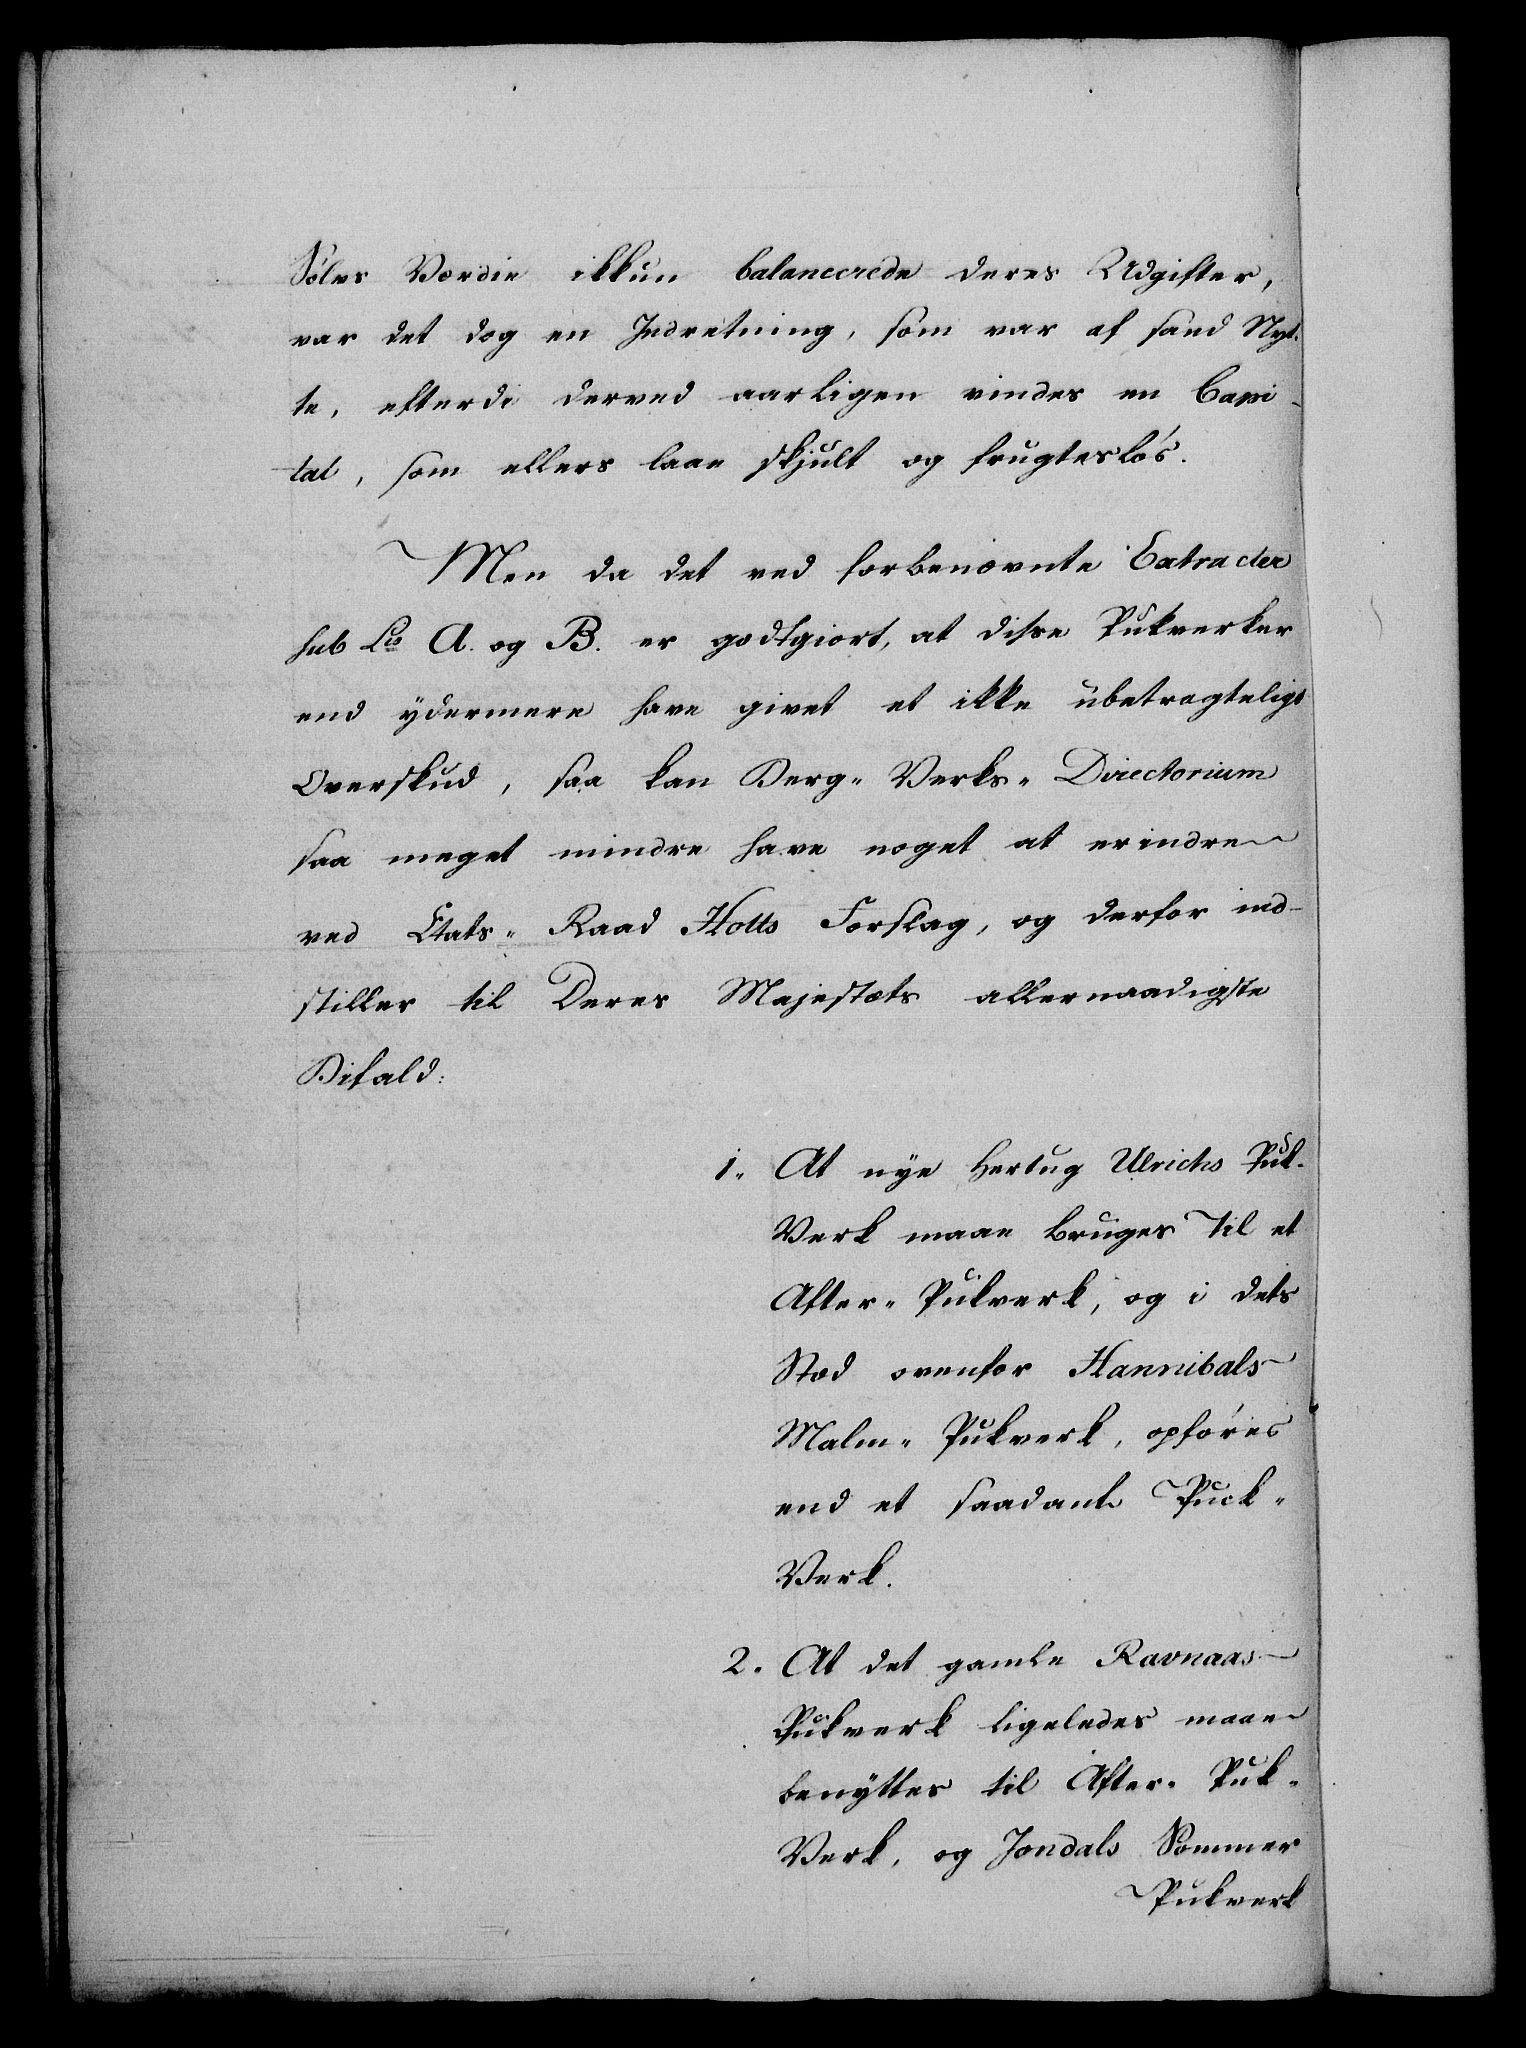 Sølvs Værdie ikkun balancerede deres Udgifter,
var det dog en Indretning, som var af sand Nyt-
te, efterdi derved aarligen vindes en Capi-
tal, som ellers laae skjult og frugtesløs.
Men da det ved forbenævnte Extracter
sub Lis A. og B. er godtgiort, at disse Pukverker
end ydermere have givet et ikke ubetragteligt
Overskud, saa kan Berg-Verks-Directorium
saa meget mindre have noget at erindre
ved Etats-Raad Holts Forslag, og derfor ind-
stiller til Deres Majestæts allernaadigste
Bifald:
1. At nye Hertug Ulrichs Puk-
Verk maae bruges til et
After-Pukverk, og i dets
Stæd ovenfor Hannibals
Malm-Pukverk, opføres
end et saadant Puck-
Verk.
2. At det gamle Ravnaas
Pukverk ligeledes maae
benyttes til After-Puk-
Verk, og Jondals Sommer
Pukverk